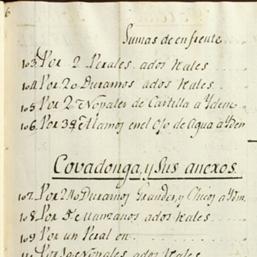 Sumas de enfrente
103. Por 2 Perales ados reales
104. Por 20 Duraznos ados reales
105. Por 2 Nopales de Castilla a Yden
106. Por 38 Alamos en el Ojo de Agua a Yden
Covadonga, y Sus anexos.
107. Por 240 Duraznos Grandes, y Chicos a Ydm.
108. Por 5 Manzanos ados reales
109. Por un Peral en
Por Nopales ados Reales